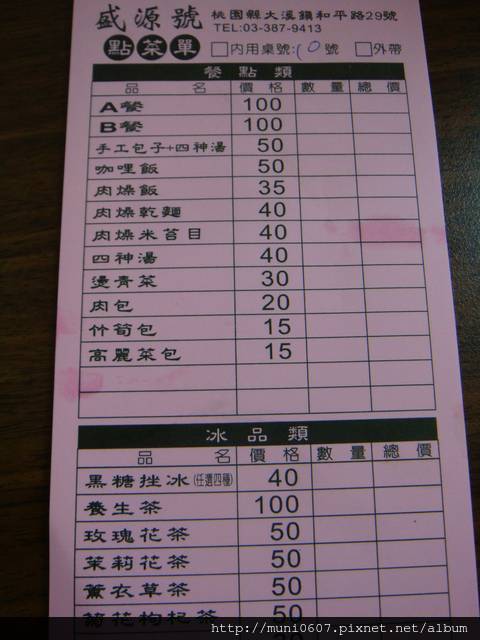 盛源號 桃園縣大溪鎮和平路29號
TEL:03-387-9413
點菜單 □內用桌號:10號 □外帶
餐點類
品名 價格 數量 總價
A餐 100
B餐 100
手工包子+四神湯 50
咖哩飯 50
肉燥飯 35
肉燥乾麵 40
肉燥米苔目 40
四神湯 40
燙青菜 30
肉包 20
竹筍包 15
高麗菜包 15
冰品類
品名 價格 數量 總價
黑糖挫冰(任選四種) 40
養生茶 100
玫瑰花茶 50
茉莉花茶 50
薰衣草茶 50
菊花枸杞茶 50
http://muni0607.pixnet.net/album